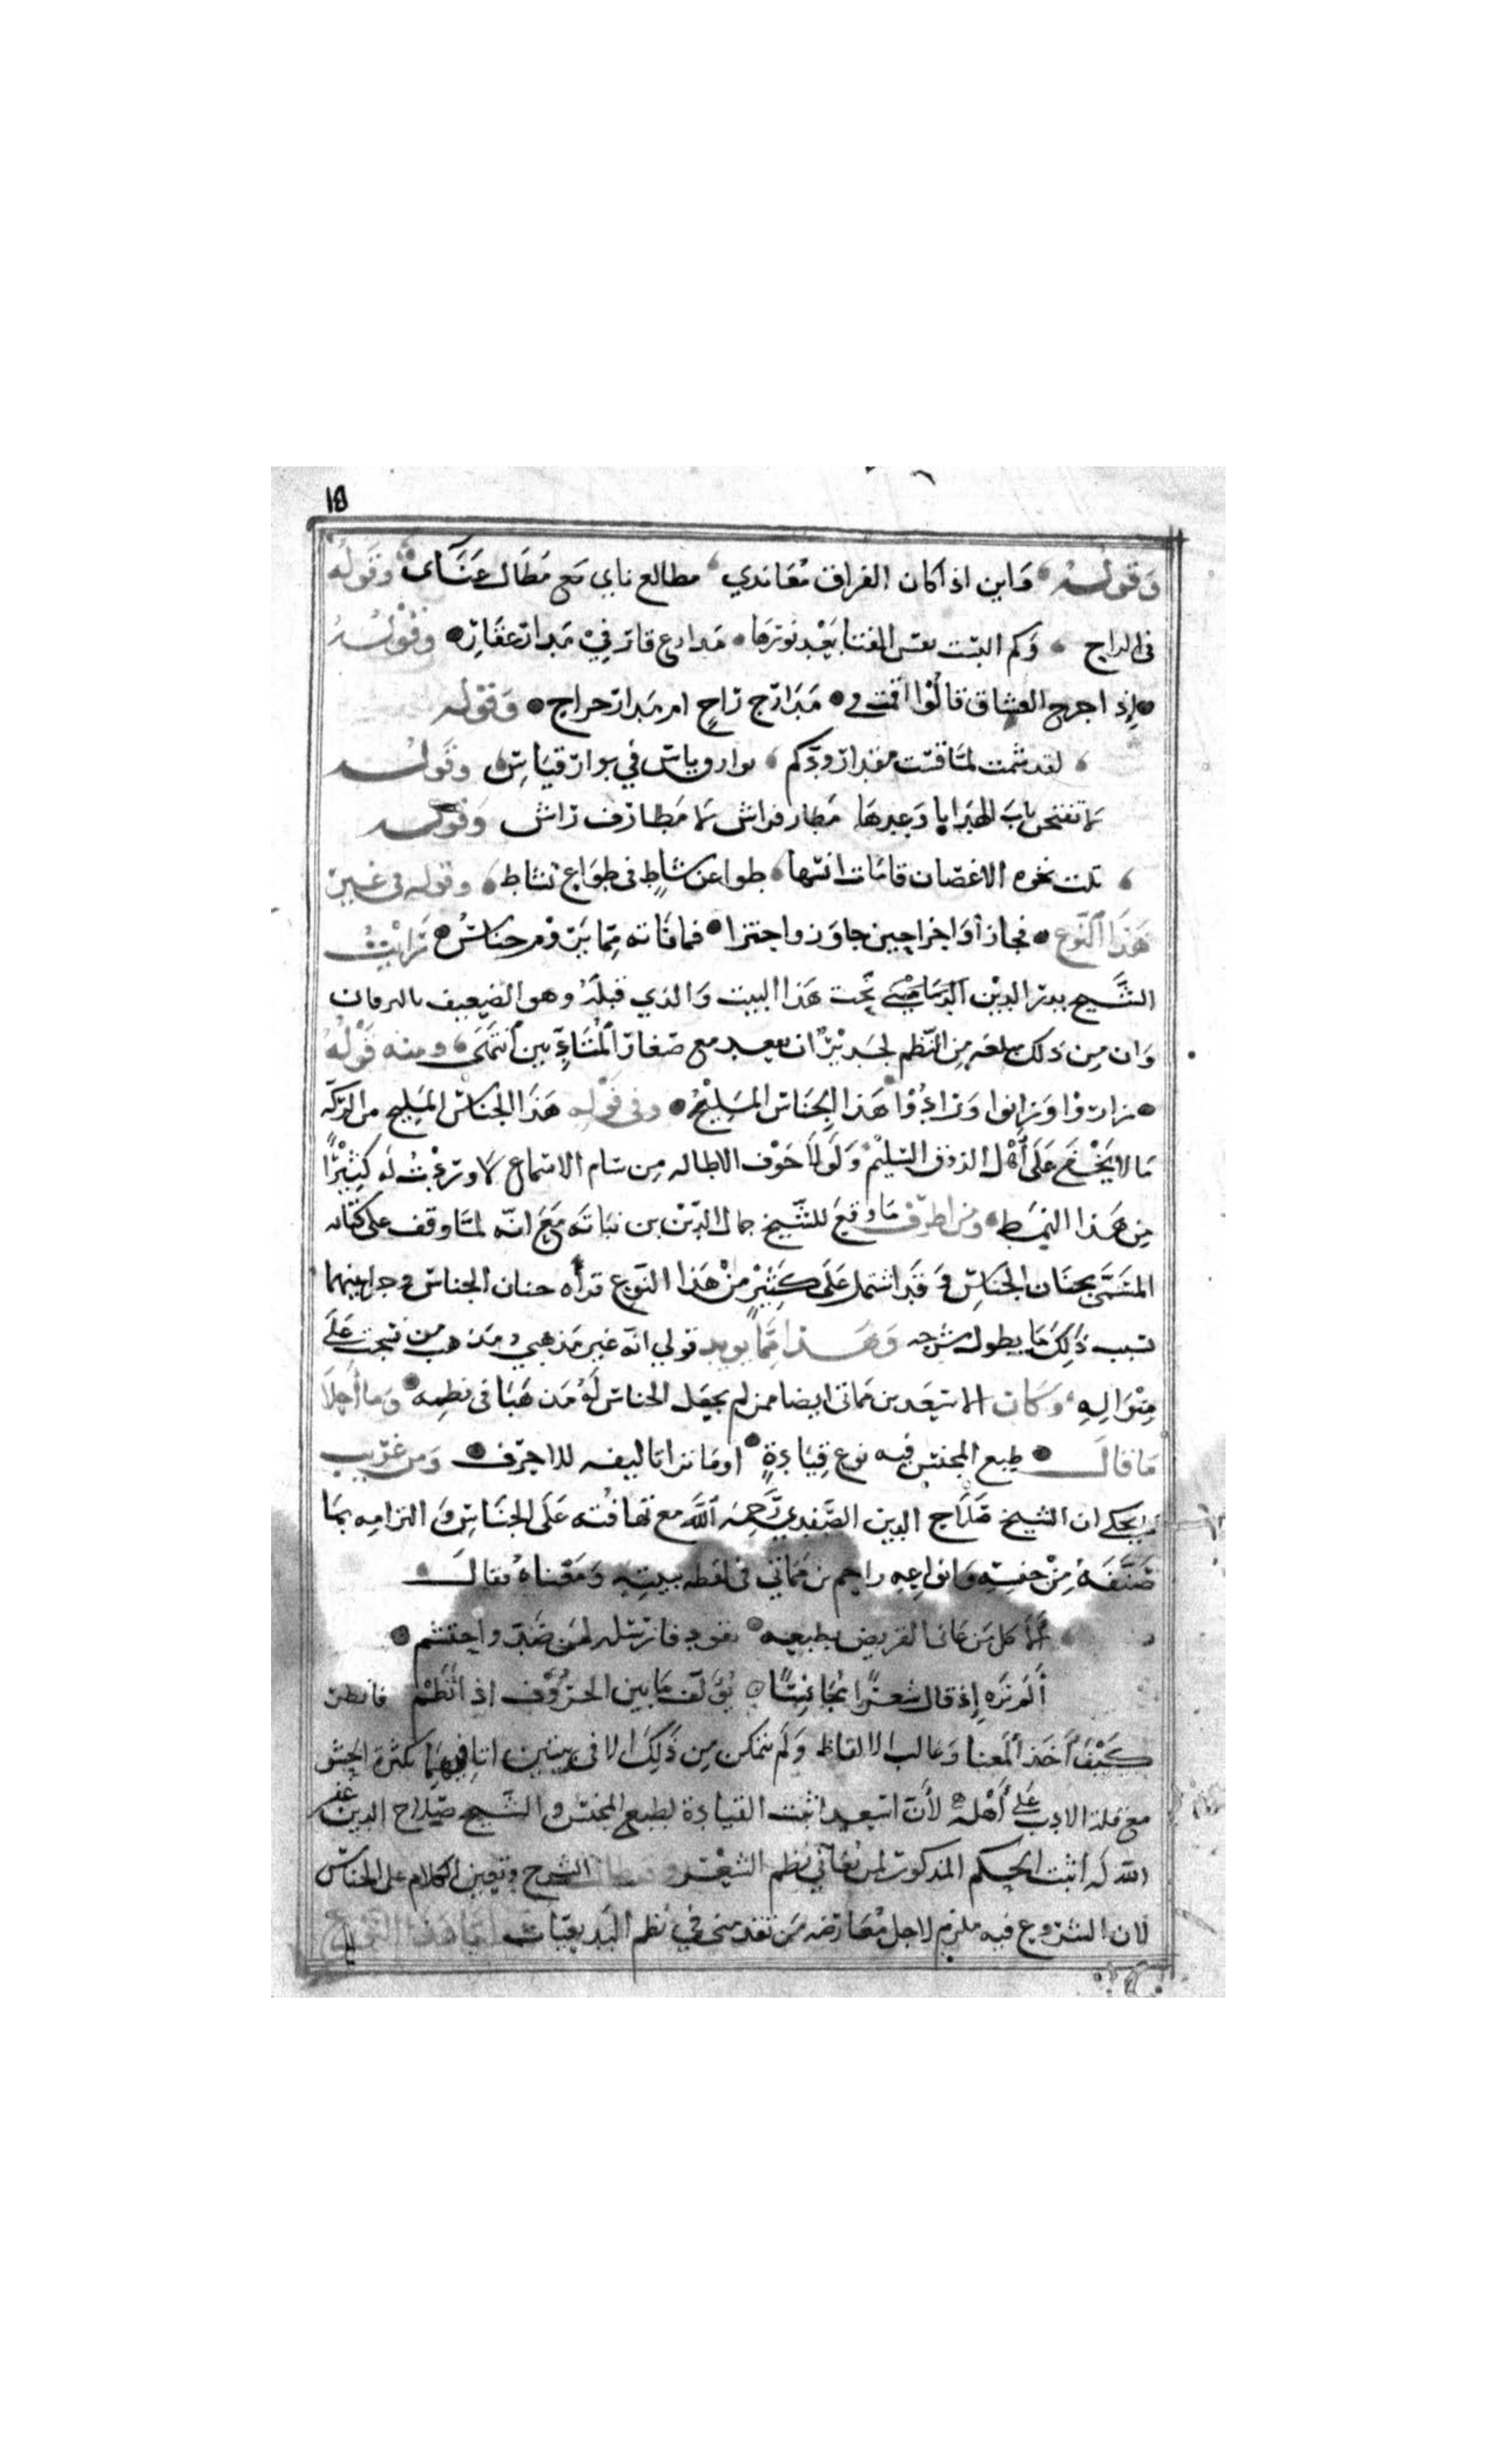 ١٥
وقوله وابن اذا كان الفراق معاندي مطالع ناي مع مطال عناي وقوله
في الراح وكم البست نفس الفتا بعد نورها مدارع قار في مدار عقاره وقوله
إذا جرح العشاق قالوا اقمت في مدارج راح ام مدار جراح وقوله
لقد شمت لما قست مقدار ودكم بوارق ياس في بوار قياس وقوله
لا تفتحن باب الهدايا وعدها مطار فراش لا مطارف راش وقوله
تلت نحوه الاغصان قامات انها طواعن شاط في طواع نشاط وقوله في غير
هذا النوع فجاز أواخراجين جاوز واجتزا فما فاته مما يروم جناس رأيت
الشيخ بدر الدين الدماميني تحت هذا البيت والذي قبله وهو الضعيف بالبرهان
وان من ذلك مبلغه من النظم لجدير ان يعد مع صغار المتأدبين انتهى ومنه قوله
زاروا وزانوا وزادوا هذا الجناس المليح وفي قوله هذا الجناس المليح من الركة
ما لا يخفى على أهل الذوق السليم ولولا خوف الاطاله من سام الاسماع لاوردت له كثيرًا
من هذا النمط ومن اظرف ما وقع للشيخ جمال الدين بن نباته مع انه لما وقف على كتابه
المسمى بجنان الجناس وقد اشتمل على كثير من هذا النوع قرأه جنان الجناس وجرا بينهما
بسبب ذلك ما يطول شرحه وهذا مما يويد قولي انه غير مذهبي ومذهب من نسجت على
منواله وكان الاسعد بن مماتي ايضا ممن لم يجعل الجناس له مذهبا في نظمه وما أحلا
ما قال طبع المجنس فيه نوع قيادة اوما ترا تاليفه للاحرف ومن غريب
ما يحكي ان الشيخ صلاح الدين الصفدي رحمه الله مع تهافته على الجناس والتزامه بما
صنفه من جنسه وانواعه زاحم بن مماتي في لفظه ببيته ومعناه فقال
ألا كل من عانى القريض بطبعه يقود فارسله لمن صد واحتشم
ألم تره إذ قال شعرًا مجانسًا يؤلف ما بين الحروف اذ انظم فانظر
كيف أخذ المعنا وغالب الالفاظ ولم يتمكن من ذلك الا في بيتين اتا فيهما بكثرة الحشو
مع قلة الادب على أهله لأن اسعد اثبت القيادة لطبع المجنس والشيخ صلاح الدين غفر
الله له اثبت الحكم المذكور لمن يعاني نظم الشعر وقد طال الشرح وتعين الكلام على الجناس
لان الشروع فيه ملزم لاجل معارضة من تقدمني في نظم البديعيات اما هذا النوع